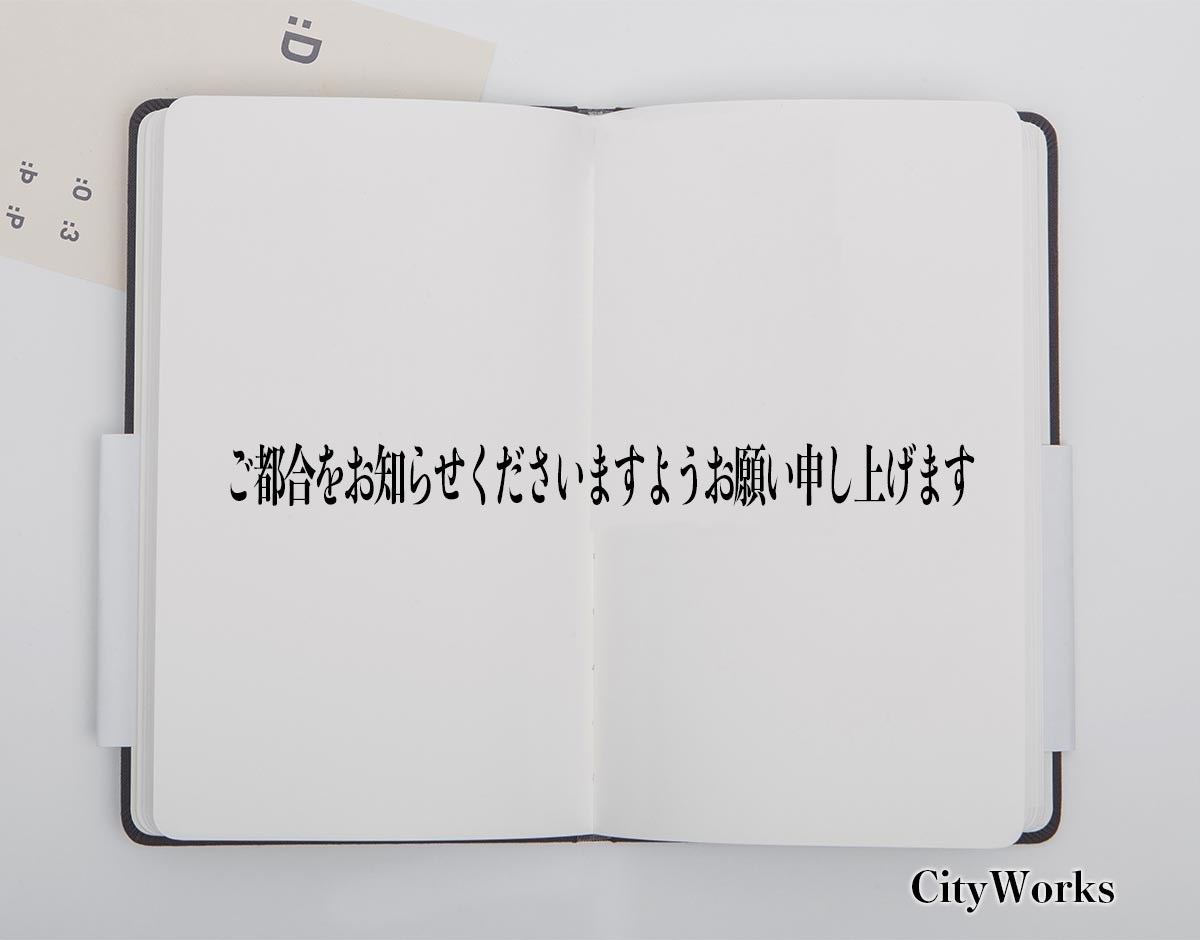 :D
:P :O
:P :3
ご都合をお知らせくださいますようお願い申し上げます
CityWorks